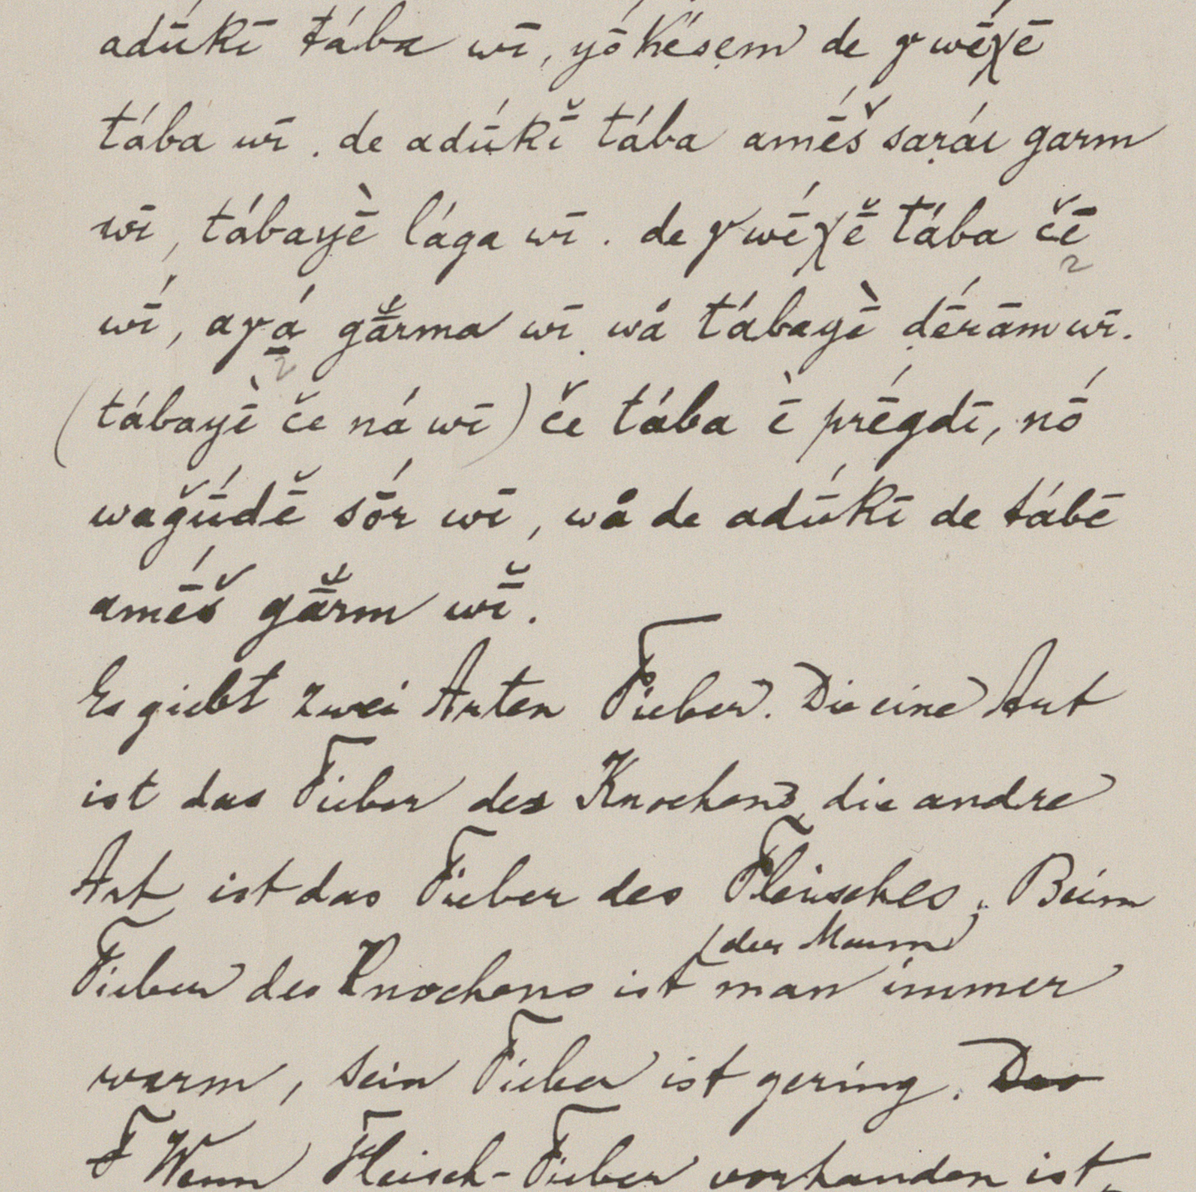 adū́kī tába wī, yṓ késem de γwḗχē
tába wī. de adū́kī̆ tába amḗš saṛáı garm
wī, tábayḕ lága wī. de γwḗχē̆ tába čē
wī́, aγá gā̆rma wī wå tábayḕ ḍḗrām wī.
(tábayḕ če ná wī) če tába ḕ prḗgdī, nṓ
wağū́dē̆ sṓr wī, wå de adū́kī de tábē
amḗš gā̆rm wī̆.
Es giebt zwei Arten Fieber. Die eine Art
ist das Fieber des Knochens, die andre
Art ist das Fieber des Fleisches. Beim
(der Mann)
Fieber des Knochens ist man immer
warm, sein Fieber ist gering. Das
F Wenn Fleisch-Fieber vorhanden ist,